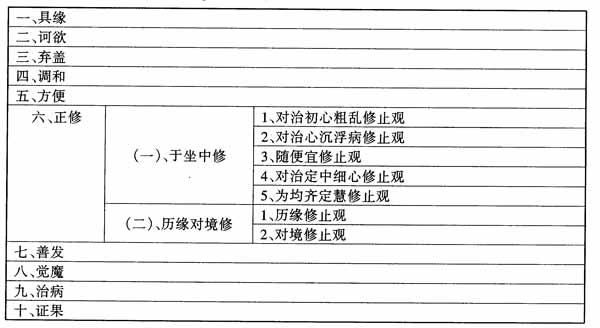 一、具缘
二、诃欲
三、弃盖
四、调和
五、方便
六、正修
(一)、于坐中修
1、对治初心粗乱修止观
2、对治心沉浮病修止观
3、随便宜修止观
4、对治定中细心修止观
5、为均齐定慧修止观
(二)、历缘对境修
1、历缘修止观
2、对境修止观
七、善发
八、觉魔
九、治病
十、证果